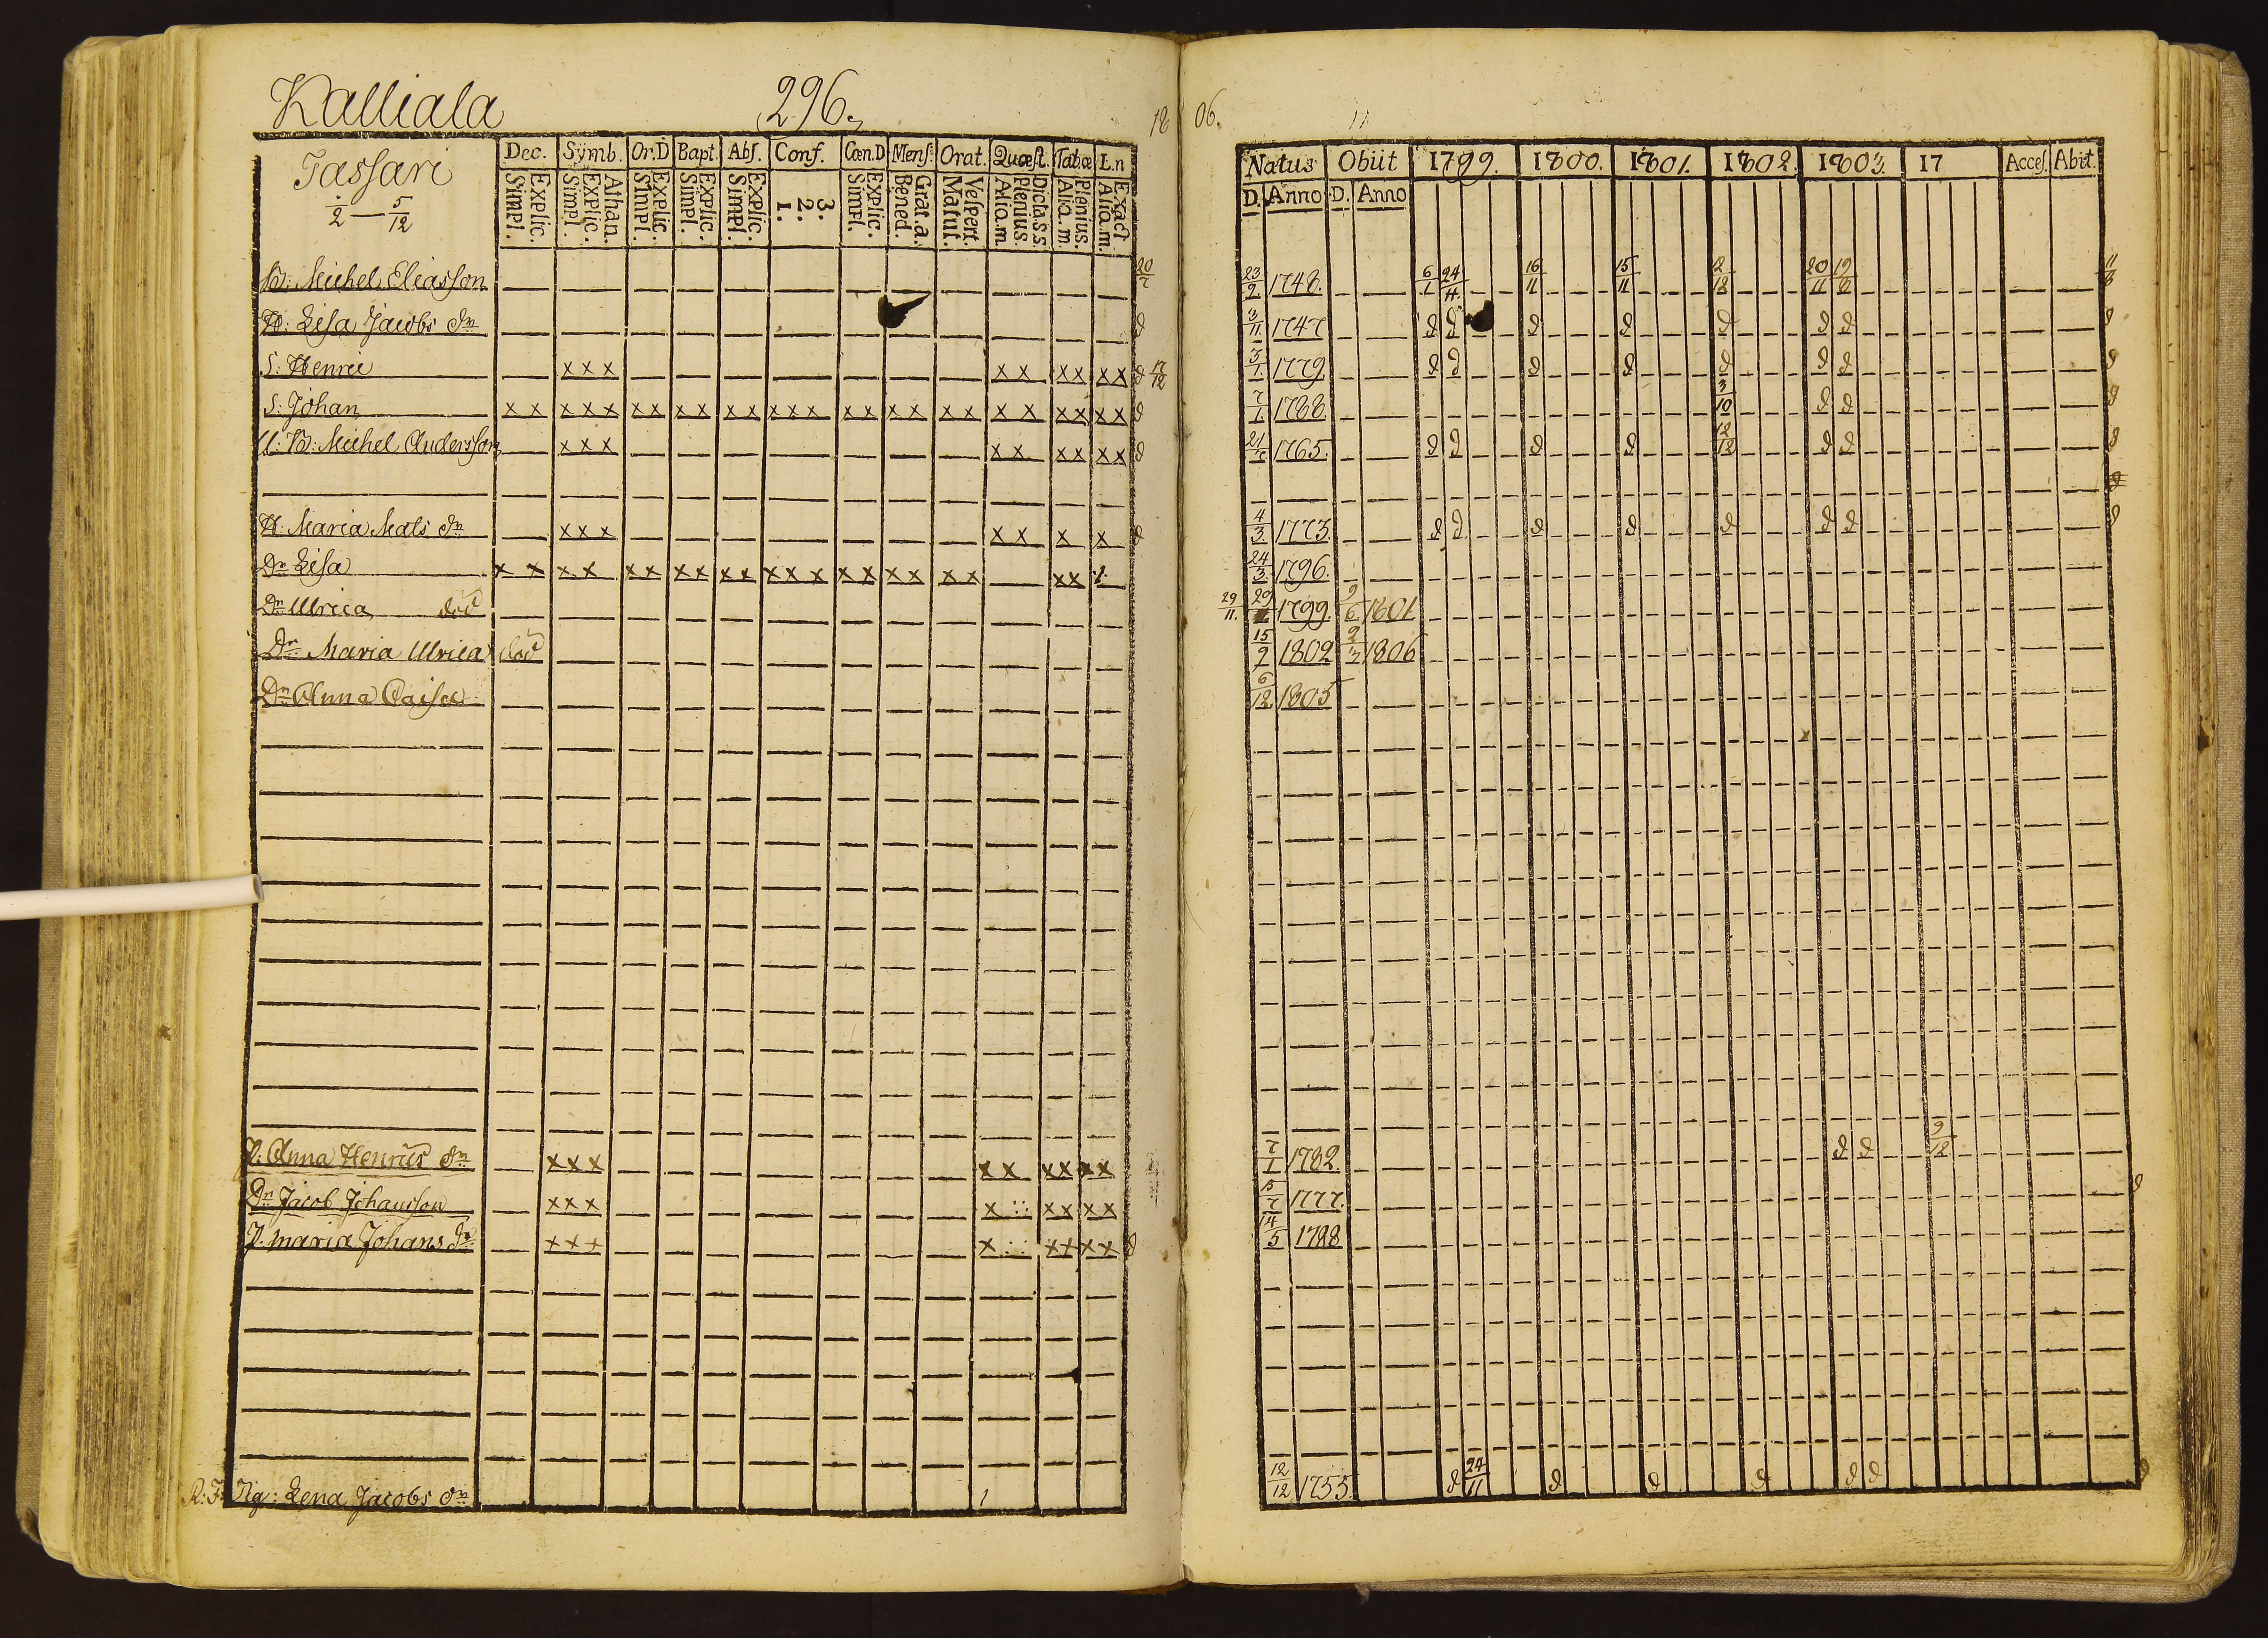 Kalliala 296.
18 06.
Tassari
2 — 5/12
Dec. Symb. Or.D Bapt. Abs. Conf. Cœn.D Mens. Orat. Quæst. Tabæ L.n
Simpl. Explic. Simpl. Explic. Athan. Simpl. Explic. Simpl. Explic. Simpl. Explic. 1. 2. 3. Simpl. Explic. Bened. Grat.a. Matut. Vespert. Alio.m. Plenius. Dicta.s.s. Alio.m. Plenius. Alio.m. Exact
Natus Obiit 1799. 1800. 1801. 1802. 1803. 17 Acces. Abit.
D. Anno D. Anno
B: Michel Eliasson 20/7 23/2 1748. 6/1 24/4 16/11 15/11 12/12 20/11 19/12
H: Lisa Jacobs dr 3/11 1747 d d d d d d d
S: Henric x x x x x x x x x d 17/12 1779 d d d d d d d
S: Johan x x x x x x x x x x x x x x x x x x x x x x x x x x d 7/1 1788. 3/10 d d
U: B: Michel Andersson x x x x x x x x x d 21/7 1765. d d d d 12/12 d d
H: Maria Mats dr x x x x x x x d 4/3 1773. d d d d d d d
Dr Lisa x x x x x x x x x x x x x x x x x x x x x x 24/3 1796.
Dr Ulrica död 29/11. 29 1799. 9/6 1801
Dr Maria Ulrica död 15/9 1802 1806
Dr Anna Caisa 6/12. 1805
P: Anna Henrics dr x x x x x x x x x 7/1 1782. d d 9/12
Dr Jacob Johansson x x x x x x x x 15/7 1777. d
P. Maria Johans dr x x x x x x x x d 14/5 1788
Lena Jacobs dr 12/12 1755. d 24/11 d d d d d